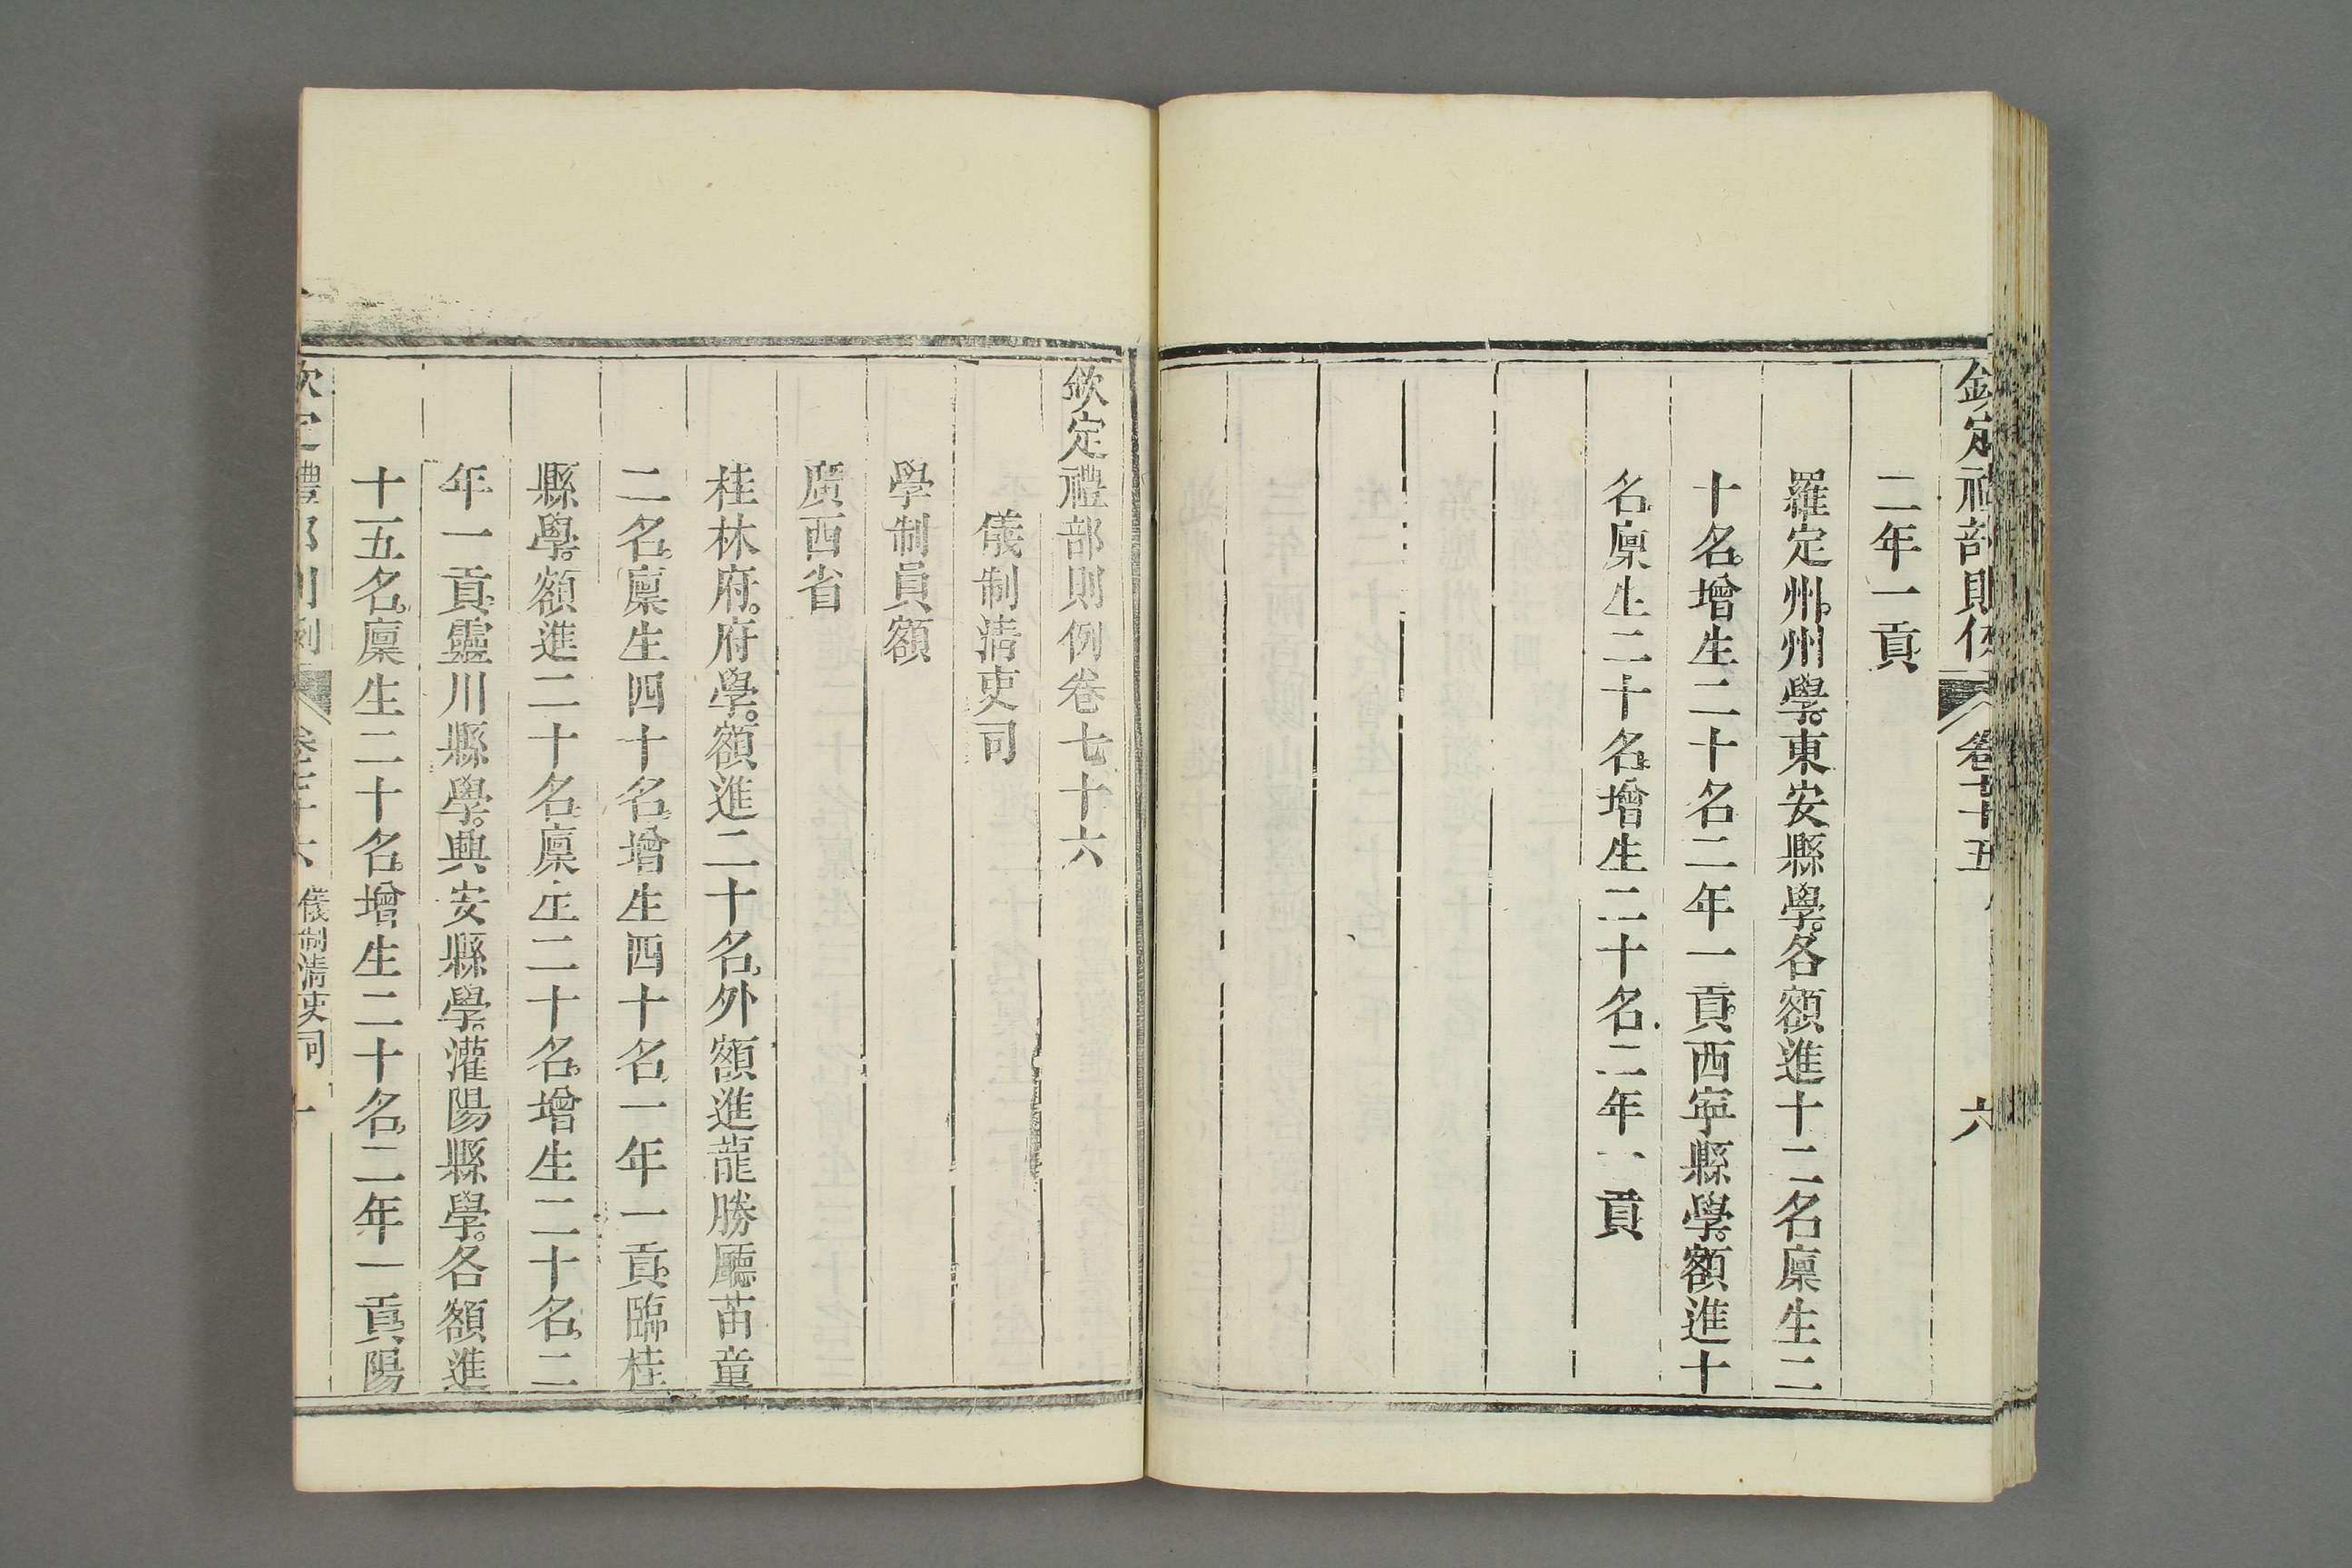 欽定禮部則例 卷七十五 六
二年一貢
羅定州州學。東安縣學。各額進十二名廩生二
十名。增生二十名二年一貢。西寧縣學。額進十
名。廩生二十名。增生二十名二年一貢
欽定禮部則例卷七十六
儀制清吏司
學制員額
廣西省
桂林府。府學。額進二十名。外額進龍勝廳苗童
二名。廩生四十名。增生四十名。一年一貢。臨桂
縣學。額進二十名。廩生二十名。增生二十名。二
年一貢。靈川縣學。興安縣學。灌陽縣學。各額進
十五名。廩生二十名。增生二十名。二年一貢。陽
欽定禮部則例 卷七十六 儀制清吏司 一